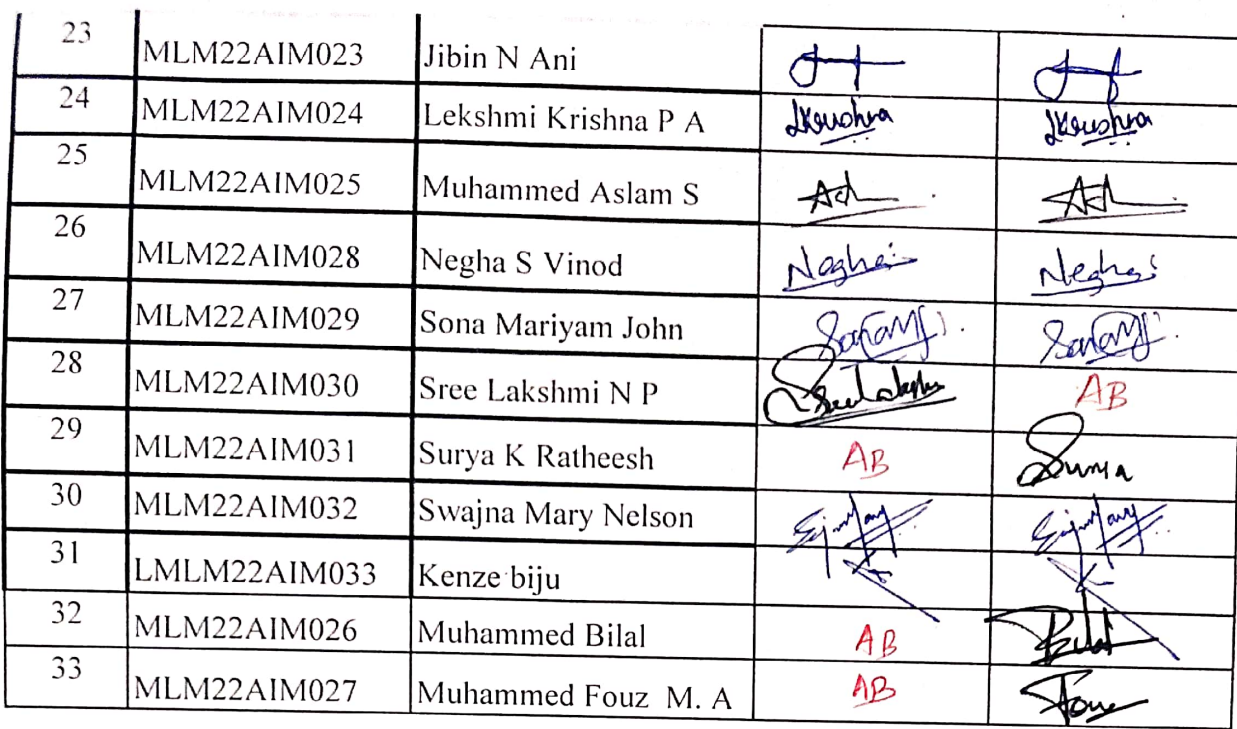 23 MLM22AIM023 Jibin N Ani
24 MLM22AIM024 Lekshmi Krishna P A LKrushna LKrushna
25 MLM22AIM025 Muhammed Aslam S
26 MLM22AIM028 Negha S Vinod Negha Negha
27 MLM22AIM029 Sona Mariyam John
28 MLM22AIM030 Sree Lakshmi N P AB
29 MLM22AIM031 Surya K Ratheesh AB Surya
30 MLM22AIM032 Swajna Mary Nelson
31 LMLM22AIM033 Kenze biju
32 MLM22AIM026 Muhammed Bilal AB Bilal
33 MLM22AIM027 Muhammed Fouz M. A AB Fouz